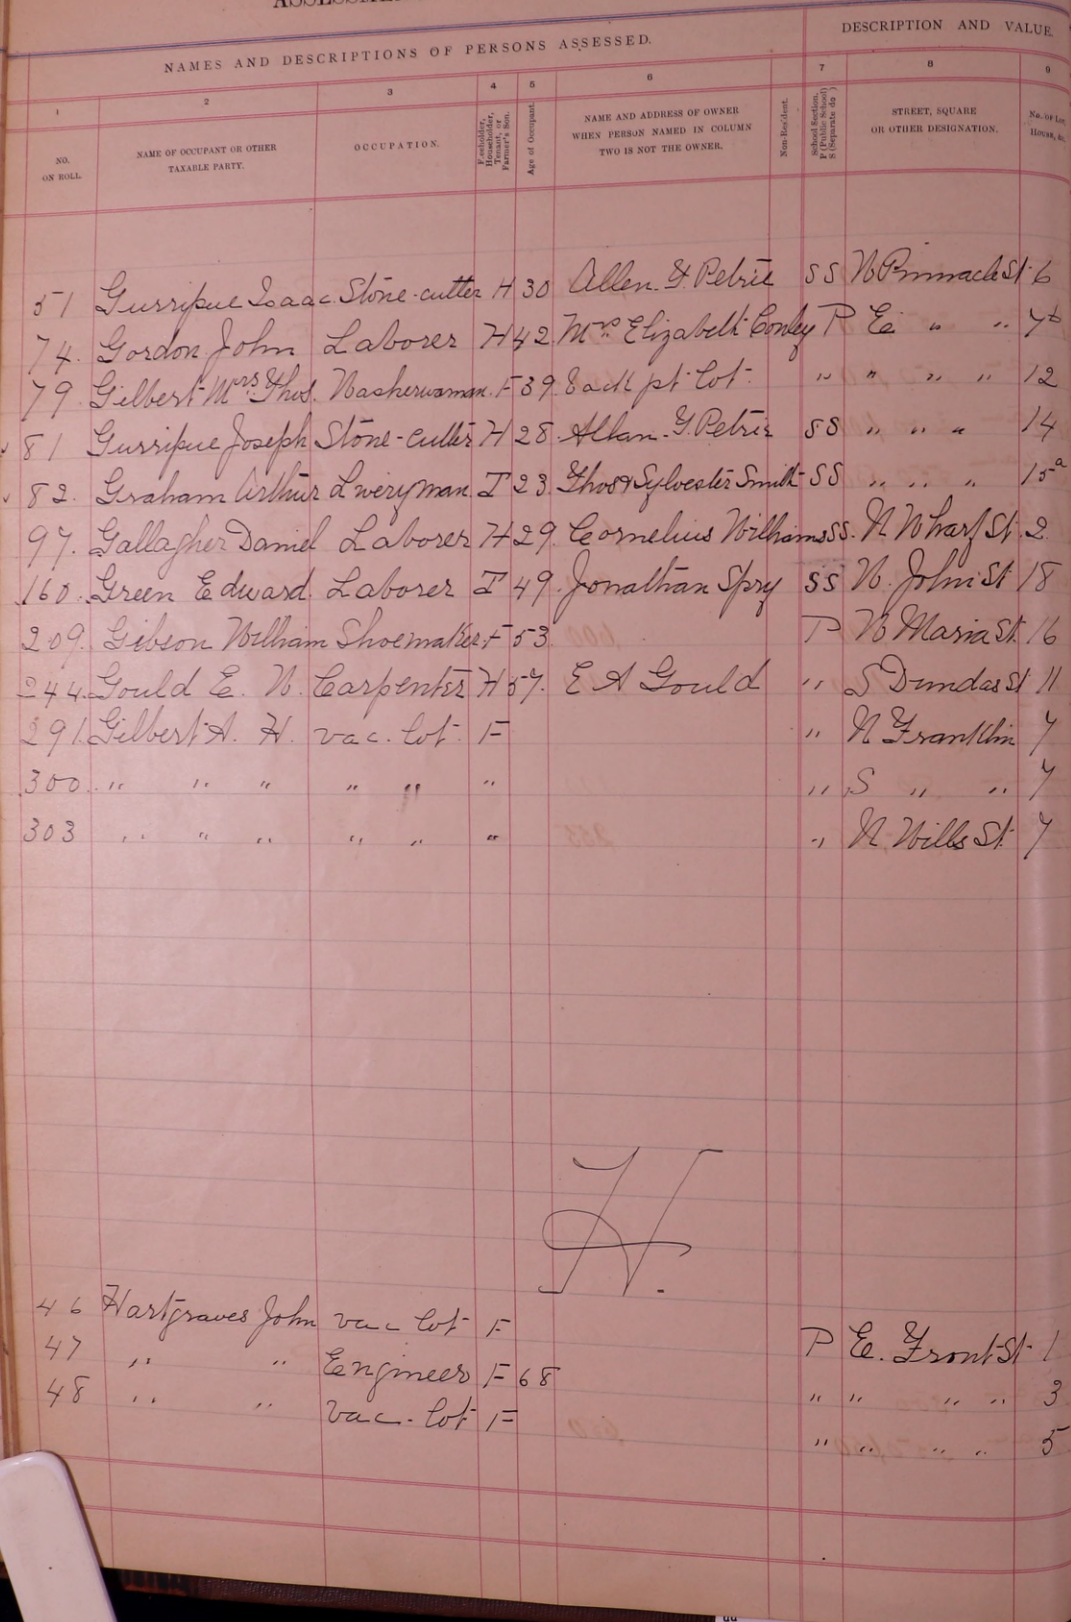 NAMES AND DESCRIPTIONS OF PERSONS ASSESSED. DESCRIPTION AND VALUE.
1 2 3 4 5 6 7 8 9
NO. ON ROLL. NAME OF OCCUPANT OR OTHER TAXABLE PARTY. OCCUPATION. Freeholder, Householder, Tenant, or Farmer's Son. Age of Occupant. NAME AND ADDRESS OF OWNER WHEN PERSON NAMED IN COLUMN TWO IS NOT THE OWNER. Non-Resident. School Section. P (Public School) S (Separate do) STREET, SQUARE OR OTHER DESIGNATION. No. of Lot, House, &c.
51 Gurripue Isaac Stone-cutter H 30 Allen. Y. Petrie SS W Pinnacle St 6
74. Gordon John Laborer H 42 Mrs Elizabeth Conley P E. " " 7b
79 Gilbert Mrs Thos. Washerwoman. F 39. Each pt lot. " " " " 12
81 Gurripue Joseph Stone-cutter H 28. Allan. Y. Petrie SS " " " 14
82. Graham Arthur Liveryman T 23 Thos & Sylvester Smith SS " " " 15a
97. Gallagher Daniel Laborer H 29. Cornelius Williams SS. N Wharf St 2
160. Green Edward. Laborer T 49. Jonathan Spry SS N. John St 18
209. Gibson William Shoemaker F 53 P W Maria St 16
244. Gould E. W. Carpenter H 57. E A Gould " S Dundas St 11
291. Gilbert A. H. vac. lot. F " N Franklin 7
300. " " " " " " " S " " 7
303 " " " " " " " N Wills St. 7
H.
46 Hartgraves John vac lot F P E. Front St 1
47 " " Engineer F 68 " " " " 3
48 " " vac. lot F " " " " 5